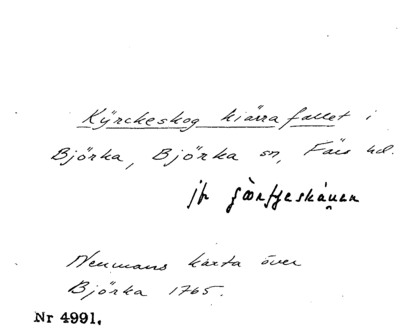 Kÿrckeskog kiärra fallet i
Björka, Björka sn, Färs hd.
jfr
Neumans karta över
Björka 1765.
Nr 4991.